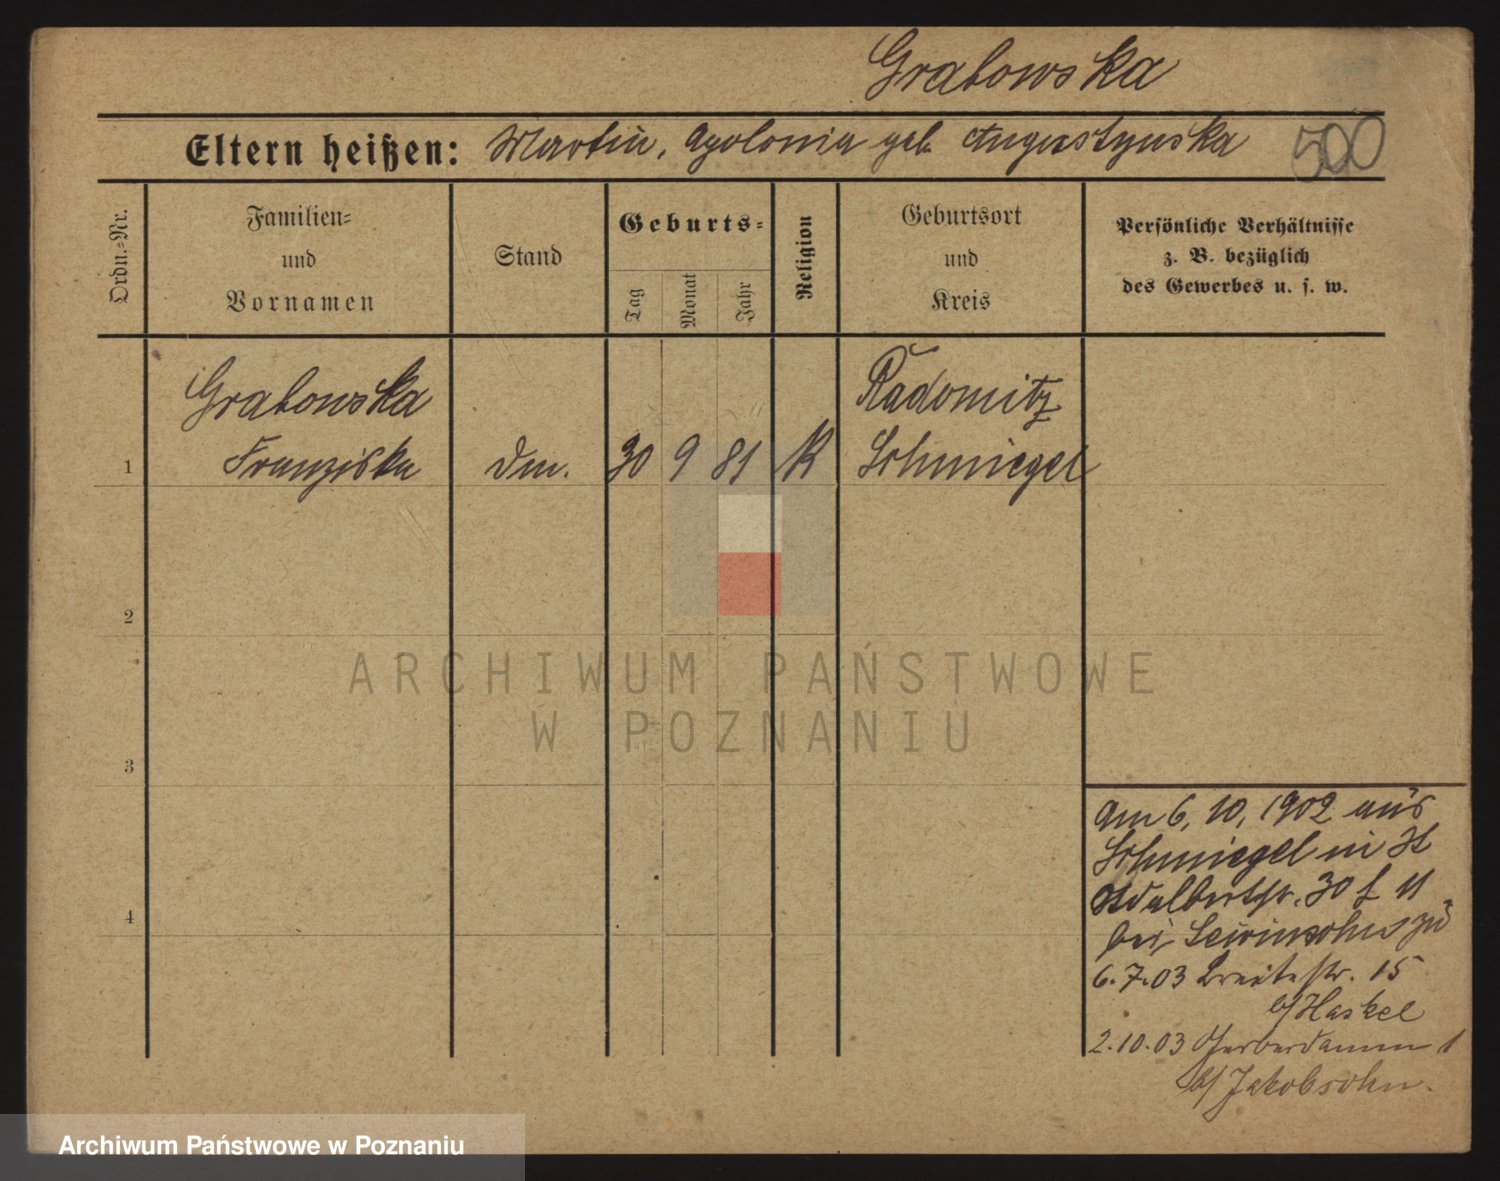 Grabowska
Eltern heißen: Martin, Apolonia geb. Augustynska 500
Ordn.-Nr.
Familien-
und
Vornamen
Stand
Geburts-
Tag
Monat
Jahr
Religion
Geburtsort
und
Kreis
Persönliche Verhältnisse
z. B. bezüglich
des Gewerbes u. s. w.
Grabowska Radomitz
1 Franziska Dm. 30 9 81 K Schmiegel
2
3
4
am 6. 10. 1902 aus
Schmiegel in
Adalbertstr. 30 f II
bei Lewinsohn zu
6.7.03 Breitestr. 15
b/ Haskel
2.10.03 Gerberdamm 1
b/ Jakobsohn.
ARCHIWUM PAŃSTWOWE
W POZNANIU
Archiwum Państwowe w Poznaniu